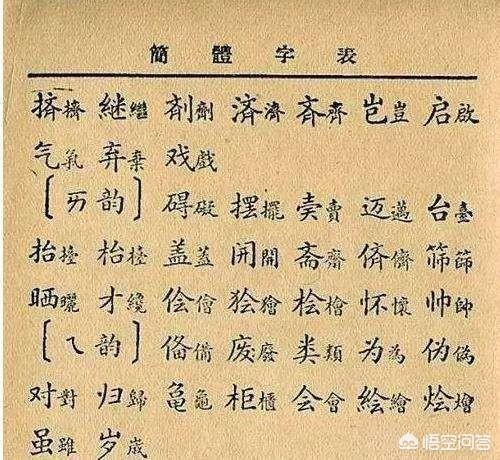 簡體字表
挤擠 継繼 剤劑 済濟 斉齊 岂豈 启啟
气氣 弃棄 戏戲
[ㄞ韵] 碍礙 摆擺 卖賣 迈邁 台臺
抬擡 枱檯 盖蓋 𫔭開 斋齋 侪儕 筛篩
晒曬 才纔 侩儈 狯獪 桧檜 怀懷 帅帥
[ㄟ韵] 俻備 废廢 类類 为為 伪偽
对對 归歸 亀龜 柜櫃 会會 絵繪 烩燴
虽雖 岁歲
悟空问答